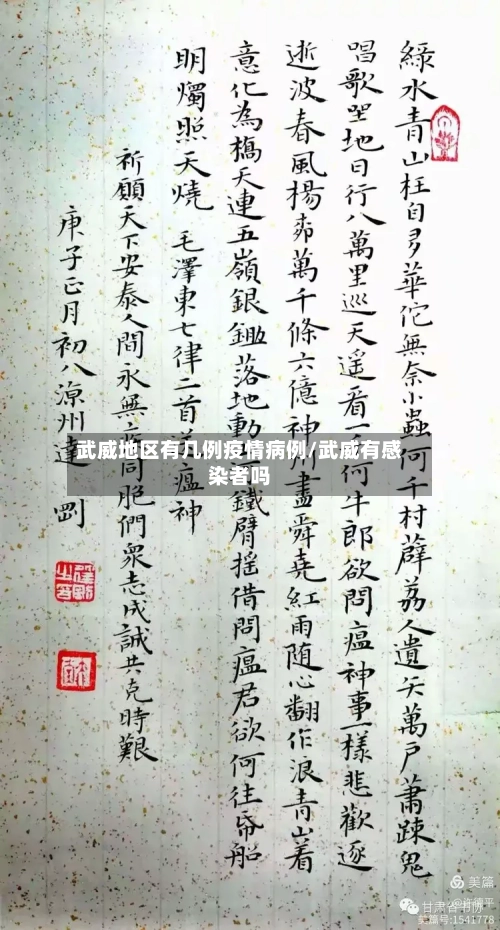 綠水青山枉自多華佗無奈小蟲何千村薜荔人遺矢萬戶蕭疎鬼
唱歌坐地日行八萬里巡天遙看一千河牛郎欲問瘟神事一樣悲歡逐
逝波春風楊柳萬千條六億神州盡舜堯紅雨随心翻作浪青山着
意化為橋天連五嶺銀鋤落地動鐵臂摇借問瘟君欲何往帋船
明燭照天燒 毛澤東七律二首 瘟神
祈願天下安泰人間永無 同胞們衆志成誠共克時艱
庚子正月初八涼州達 剛
武威地区有几例疫情病例/武威有感
染者吗
美篇
甘肃省书协
美篇号:1541778